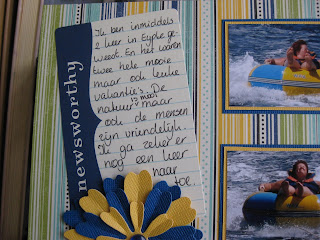 newsworthy
Ik ben inmiddels
2 keer in Egypte ge-
weest. En het waren
twee hele mooie
maar ook leuke
vakantie's. De
natuur is mooi maar
ook de mensen
zijn vriendelijk.
Ik ga zeker er
nog een keer
naar
toe.